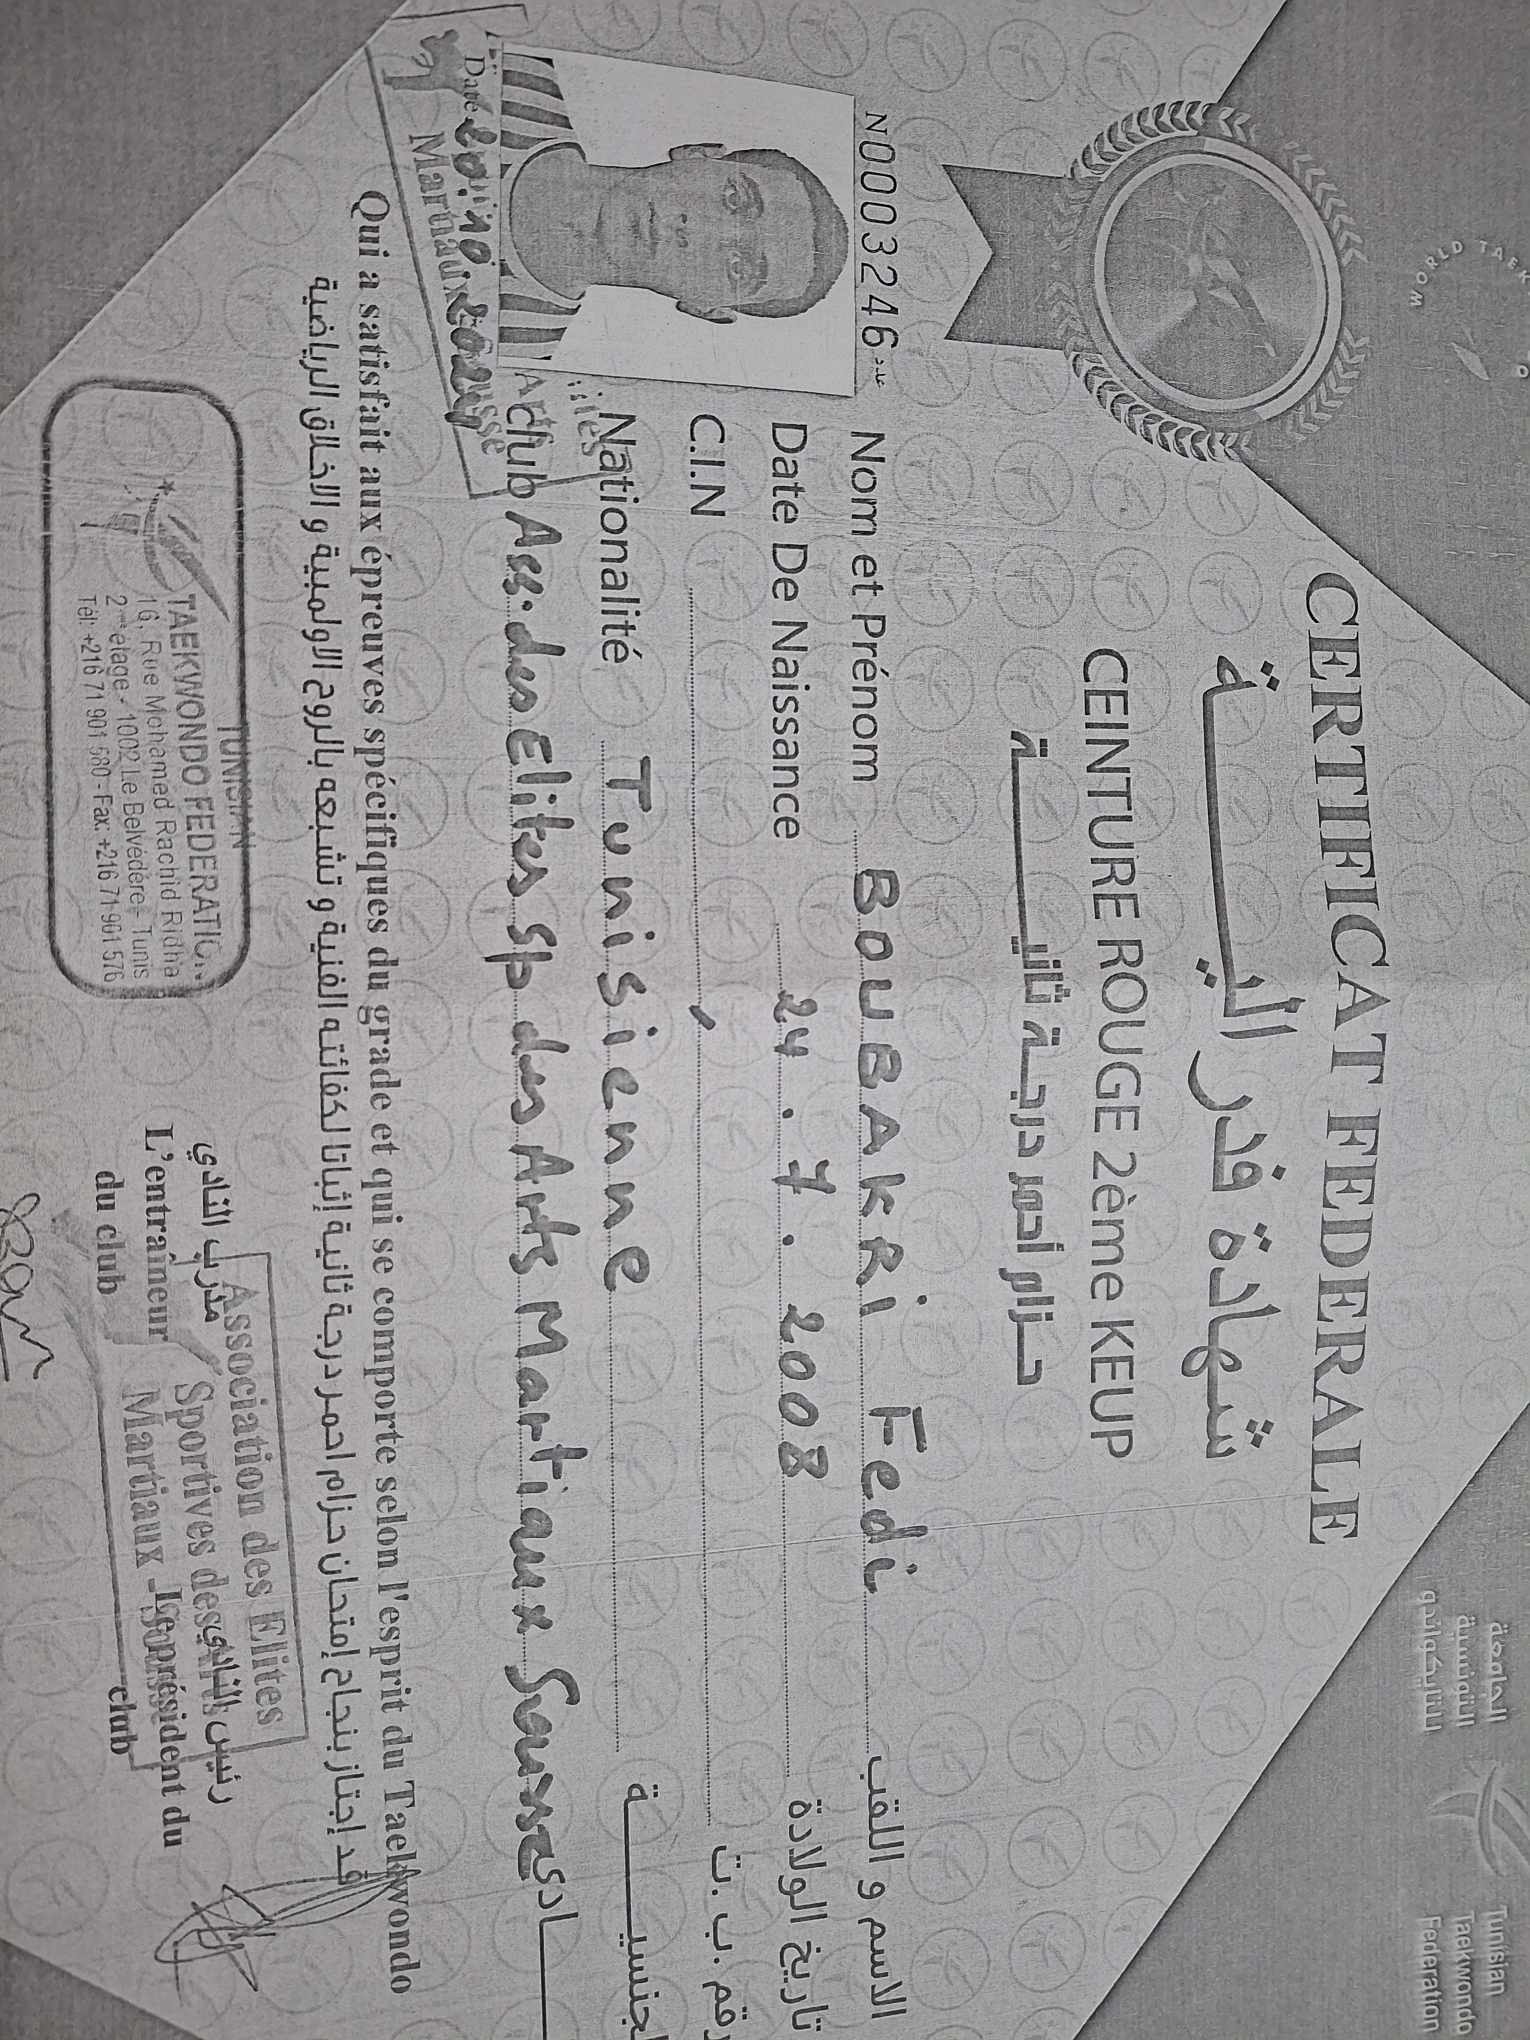 WORLD TAEK
الجامعة
التونسية
للتايكواندو
Tunisian
Taekwondo
Federation
CERTIFICAT FEDERALE
شهادة فدراليـــــة
CEINTURE ROUGE 2ème KEUP
حـزام أحمر درجـة ثانيـــــة
N0003246 عدد
Nom et Prénom BOUBAKRI Fedi الاسم و اللقب
Date De Naissance 24 . 7 . 2008 تاريخ الولادة
C.I.N رقم .ب .ت
Nationalité Tunisienne لجنسيـــــة
club Ass. des Elites Sp des Arts Martiaux Sousse
Date 20.10.2024
Martiaux
Qui a satisfait aux épreuves spécifiques du grade et qui se comporte selon l'esprit du Taekwondo
قد إجتاز بنجاح إمتحان حزام احمر درجة ثانية إثباتا لكفائته الفنية و تشبعه بالروح الاولمبية و الاخلاق الرياضية
TUNISIAN
TAEKWONDO FEDERATION
16, Rue Mohamed Rachid Ridha
2ème étage - 1002 Le Belvédère - Tunis
Tél: +216 71 901 580 - Fax: +216 71 901 576
مدرب النادي
L'entraîneur
du club
Association des Elites
Sportives des
Martiaux
رئيس النادي
Le président du
club